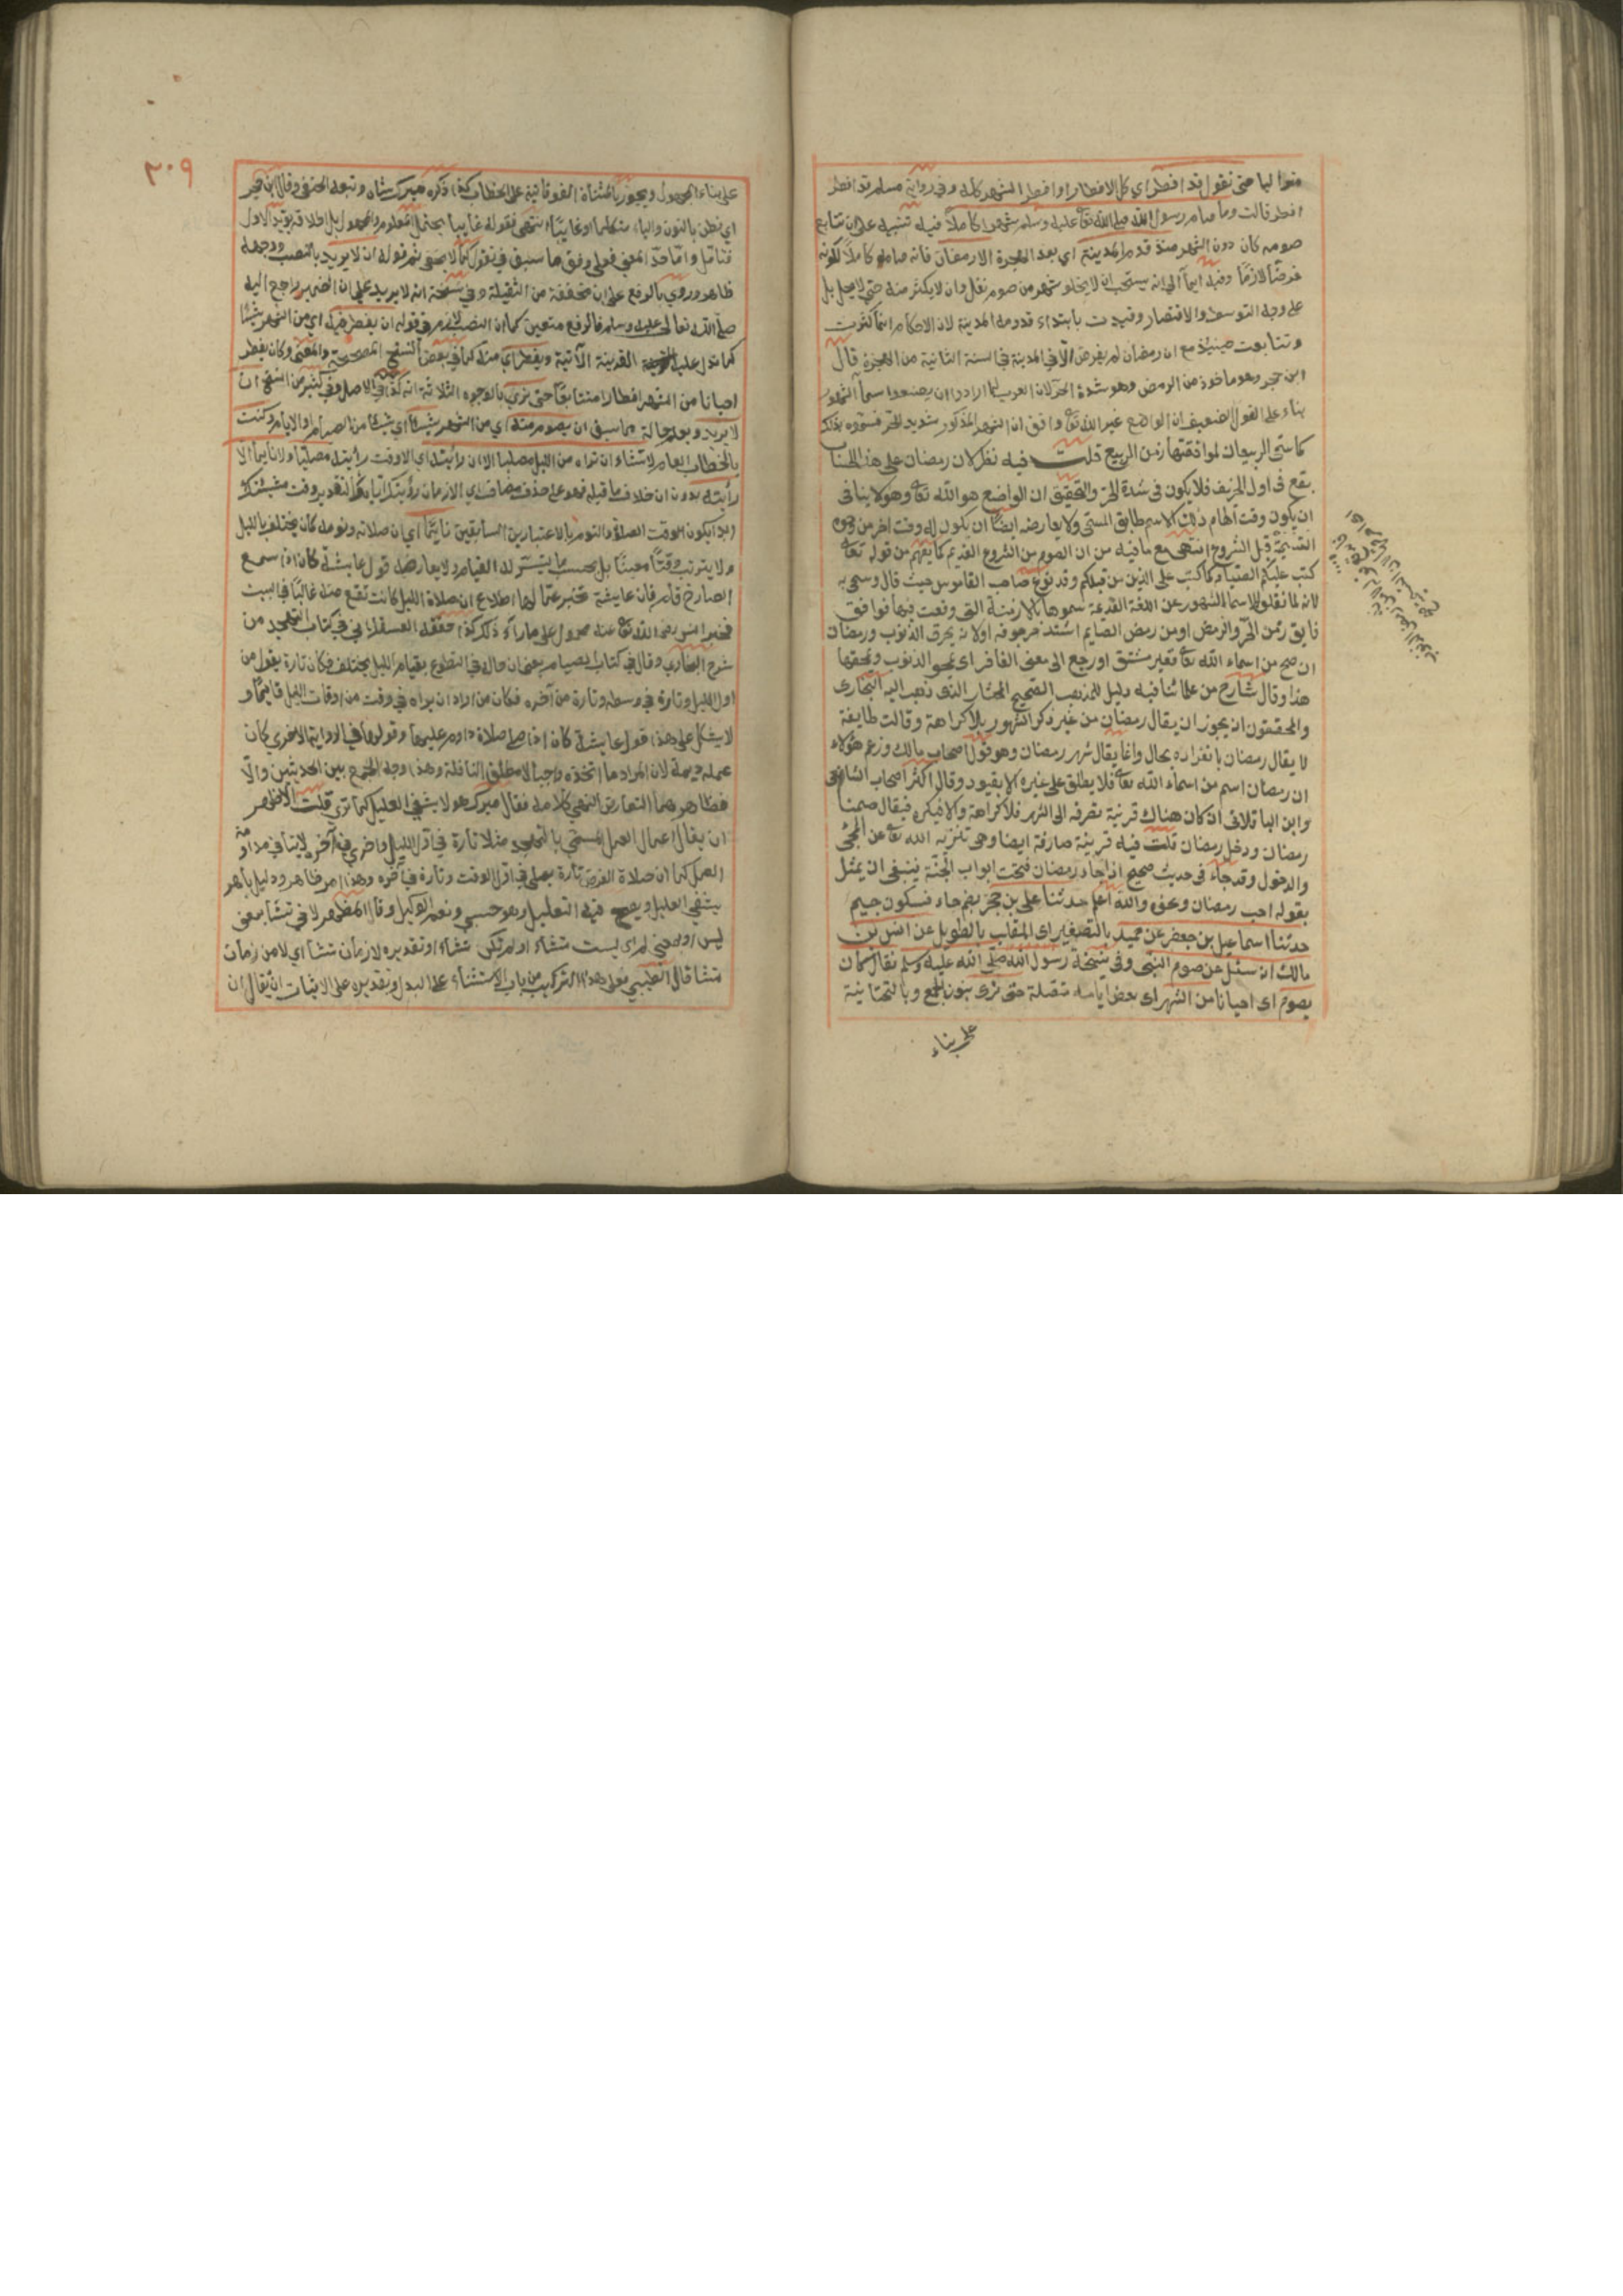 منه اليا حتى نقول قد افطر اي كل الافطار او افطر الشهر كله وفي رواية مسلم قد افطر
افطر قالت وما صام رسول الله صلى الله تعا عليه وسلم شهرا كاملا فيه تنبيه على ان تتابع
صومه كان دون الشهر منذ قدم المدينة اي بعد الهجرة الا رمضان فانه صامه كاملا لكونه
فرضا لازما وفيه ايما الى انه يستحب ان لا يخلو شهر من صوم نفل وان لا يكثر منه حتى لا يمل بل
على وجه التوسط والاقتصار وقيدت بابتداء قدومه المدينة لان الاحكام انما كثرت
وتتابعت حينئذ مع ان رمضان لم يفرض الا في المدينة في السنة الثانية من الهجرة قال
ابن حجر وهو ماخوذ من الرمض وهو شدة الحر لان العرب لما ارادوا ان يضعوا اسما الشهور
بناء على القول الضعيف ان الواضع غير الله تعا وافق ان الشهر المذكور شديد الحر فسموه بذلك
كما سمي الربيعان لموافقتهما زمن الربيع قلت فيه نظر لان رمضان على هذا الحساب
يقع في اول الخريف فلا يكون في شدة الحر والتحقيق ان الواضع هو الله تعا وهو لا ينافى
ان يكون وقت الهام ذلك الاسم طابق المسمى ولا يعارضه ايضا ان يكون له وقت اخر من وجوه
القديمة قبل الشروع انتهى مع ما فيه من ان الصوم من الشروع القديم كما يفهم من قوله تعا
كتب عليكم الصيام كما كتب على الذين من قبلكم وقد نوع صاحب القاموس حيث قال وسمى به
لانه لما نقلوا الاسما الشهور عن اللغة القديمة سموها بالازمنة التي وقعت فيها فوافق
فايق زمن الحر والرمض او من رمض الصايم اشتد حر جوفه او لانه يحرق الذنوب ورمضان
ان صح من اسماء الله تعا فغير مشتق او رجع الى معنى الغافر اي يمحو الذنوب ويمحقها
هذا وقال شارح من علمائنا فيه دليل للمذهب الصحيح المختار الذي ذهب اليه البخارى
والمحققون انه يجوز ان يقال رمضان من غير ذكر الشهور بلا كراهة وقالت طايفة
لا يقال رمضان بانفراده بحال وانما يقال شهر رمضان وهو قول اصحاب مالك وزعم هؤلاء
ان رمضان اسم من اسماء الله تعا فلا يطلق على غيره الا بقيود وقال اكثر اصحاب الشافعى
وابن الباقلانى ان كان هناك قرينة تصرفه الى الشهر فلا كراهة والا فيكره فيقال صمنا
رمضان ودخل رمضان قلت فيه قرينة صارفة ايضا وهى تنزيه الله تعا عن المجئ
والدخول وقد جاء فى حديث صحيح اذا جاء رمضان فتحت ابواب الجنة ينبغى ان يمثل
بقوله احب رمضان ونحوه والله اعلم حدثنا على بن حجر بضم حاء فسكون جيم
حدثنا اسماعيل بن جعفر عن حميد بالتصغير اى الملقب بالطويل عن انس بن
مالك انه سئل عن صوم النبى وفى نسخة رسول الله صلى الله عليه وسلم فقال كان
يصوم اى احيانا من الشهر اى بعض ايامه متصلة حتى نرى بنون الجمع وبالتحتانية
على بناء
٢٠٩
على بناء المجهول ويجوز بالمثناة الفوقانية على الخطاب كذا ذكره ميرك شاه وتبعه الحنفى وقال ابن حجر
اي نظن بالنون والياء متكلما او غايبا انتهى فقوله غايبا يحتمل المعلوم والمجهول بل اطلاقه يؤيد الاول
فتامل واما حد المعنى فعلى وفق ما سبق في نقول كما لا يخفى ثم قوله ان لا يريد بالنصب ووجهه
ظاهر وروي بالرفع على ان مخففة من الثقيلة وفي نسخة انه لا يريد على ان الضمير راجع اليه
صلى الله تعالى عليه وسلم فالرفع متعين كما ان النصب لازم في قوله ان يفطر منه اي من الشهر شيئا
كما تدل عليه القرينة الآتية ويفطر اي منه كما في بعض النسخ المصححة والمعنى وكان يفطر
احيانا من الشهر افطارا متتابعا حتى نرى بالوجوه الثلاثة انه كذا في الاصل وفي كثير من النسخ ان
لا يريد ويعلم حاله مما سبق ان يصوم منه اي من الشهر شيئا اي شيئا من الصيام او الايام وكنت
بالخطاب العام لا تشاء ان تراه من الليل مصليا الا ان رأيته اي الا وقت رأيته مصليا ولا نائما الا
رأيته بدون ان خلاف ما قبله فهو على حذف مضاف اي الا زمان رؤيتك اياه كما التقدير وقت مشيئتك
ابدا يكون لوقت الصلاة والنوم بالاعتبارين السابقين نايما اي ان صلاته ونومه كان يختلف بالليل
ولا يترتب وقتا معينا بل بحسب ما يتيسر له القيام ولا يعارضه قول عايشة كان اذا سمع
الصارخ قام فان عايشة تخبر عما لها اطلاع ان صلاة الليل كانت تقع منه غالبا في البيت
فخبر انس رضى الله تعا عنه محمول على ما رآه ذلك كذا حققه العسقلاني في كتاب التهجد من
شرح البخاري وقال في كتاب الصيام يعني ان حاله في التطوع بقيام الليل يختلف فكان تارة يقوم من
اول الليل وتارة في وسطه وتارة من آخره فكان من اراد ان يراه في وقت من اوقات الليل قايما
لا يشكل على هذا قول عايشة كان اذا صلى صلاة داوم عليها وقولها في الرواية الاخرى كان
عمله ديمة لان المراد ما اتخذه راتبا لا مطلق النافلة وهذا وجه الجمع بين الحديثين والا
فظاهرهما التعارض انتهى كلامه فقال ميرك هو لا يشفي العليل كما ترى قلت الاظهر
ان يقال اعمال العمل المسمى بالتهجد مثلا تارة في اول الليل واخرى في آخره لا ينافي مداومة
العمل كما ان صلاة الفرض تارة يصلى في اول الوقت وتارة في آخره وهذا امر ظاهر ودليل باهر
يشفي العليل ويصح فيه التعليل وهو حسبي ونعم الوكيل وقال المظهر لا في تشا بمعنى
ليس او بمعنى لم اي ليست تشاء او لم تكن تشاء او تقديره لا زمان تشا اي لا من زمان
تشا قال الطيبي فعلى هذا التركيب من باب الاستثناء على البدل وتقديره على الاثبات ان يقال ان